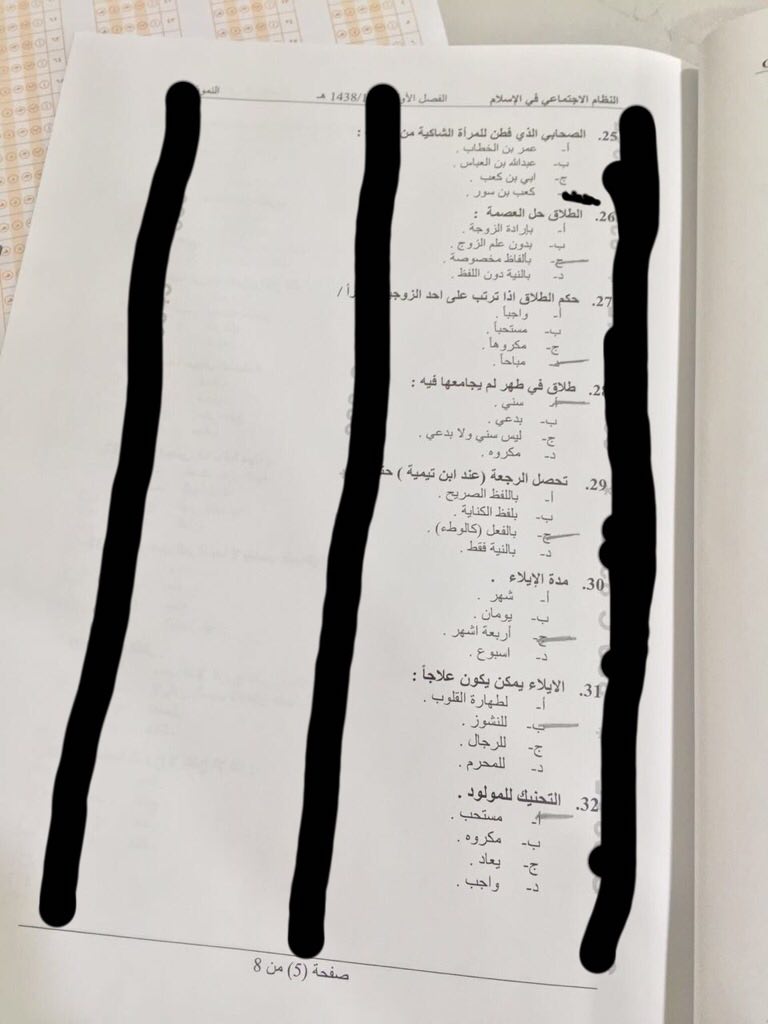 النظام الاجتماعي في الإسلام الفصل الأو 1438/1 هـ النمو
25. الصحابي الذي فطن للمرأة الشاكية من :
أ- عمر بن الخطاب .
ب- عبدالله بن العباس .
ج- ابي بن كعب .
كعب بن سور .
26. الطلاق حل العصمة :
أ- بإرادة الزوجة .
ب- بدون علم الزوج .
ج- بألفاظ مخصوصة .
د- بالنية دون اللفظ .
27. حكم الطلاق اذا ترتب على احد الزوجي راً /
أ- واجباً .
ب- مستحباً .
ج- مكروهاً .
د- مباحاً .
28 طلاق في طهر لم يجامعها فيه :
أ- سني .
ب- بدعي .
ج- ليس سني ولا بدعي .
د- مكروه .
29. تحصل الرجعة (عند ابن تيمية )
أ- باللفظ الصريح .
ب- بلفظ الكناية .
ج- بالفعل (كالوطء) .
د- بالنية فقط .
30. مدة الإيلاء .
أ- شهر .
ب- يومان .
ج- أربعة اشهر .
د- اسبوع .
31. الايلاء يمكن يكون علاجاً :
أ- لطهارة القلوب .
ب- للنشوز .
ج- للرجال .
د- للمحرم .
32. التحنيك للمولود .
أ- مستحب .
ب- مكروه .
ج- يعاد .
د- واجب .
صفحة (5) من 8